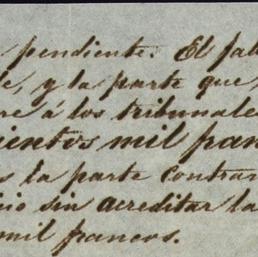 pendiente. El fal
, y la parte que
re á los tribunale
ientos mil fran
s la parte contra
cio sin acreditar la
mil francos.